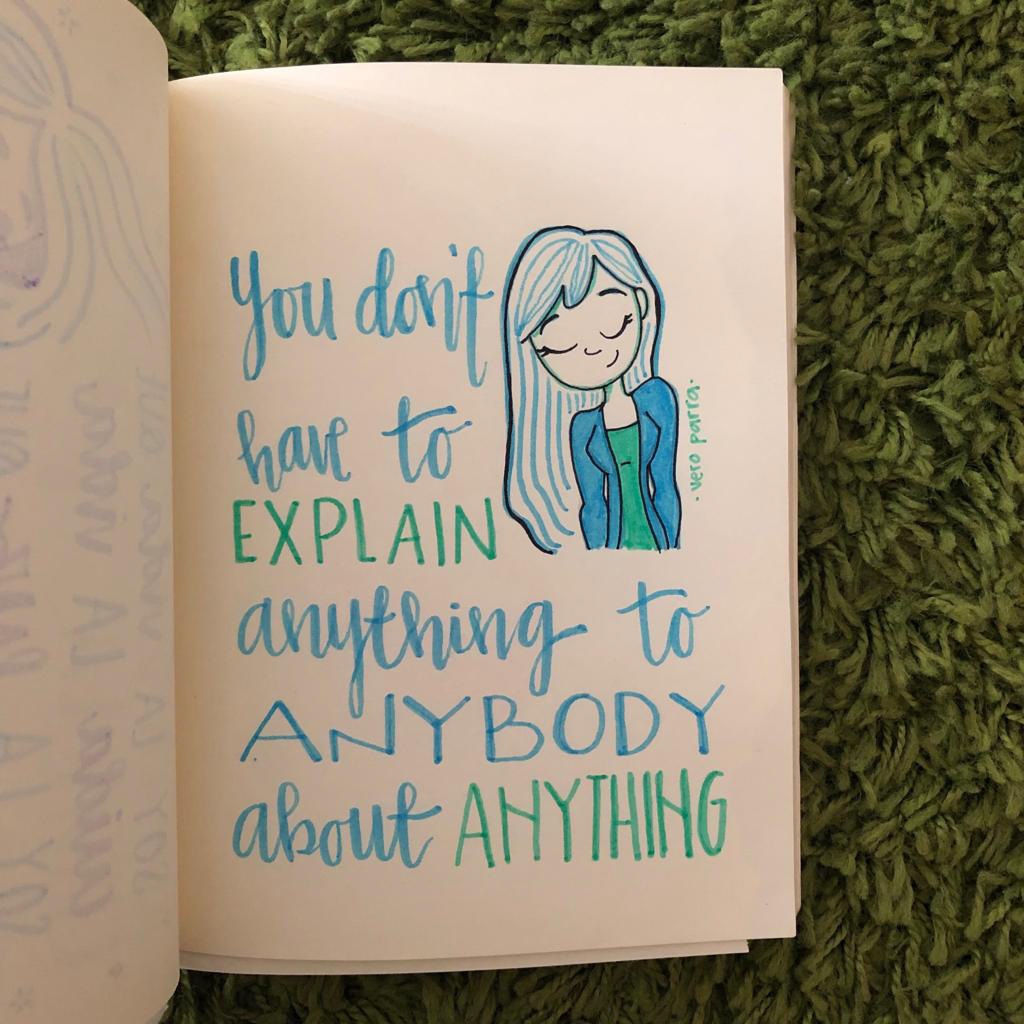 You don't
have to
EXPLAIN
anything to
ANYBODY
about ANYTHING
· vero parra ·